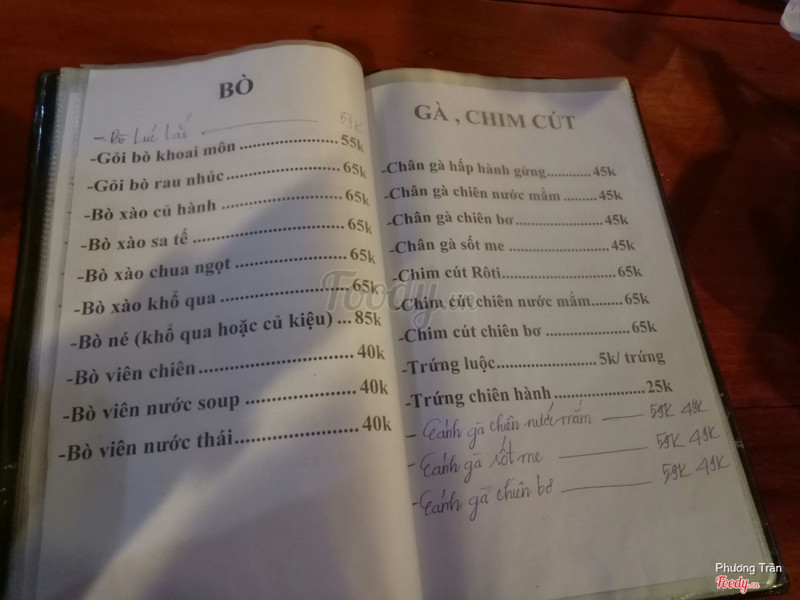 BÒ
- Bò Lúc Lắc 59K
-Gỏi bò khoai môn 55k
-Gỏi bò rau nhúc 65k
-Bò xào củ hành 65k
-Bò xào sa tế 65k
-Bò xào chua ngọt 65k
-Bò xào khổ qua 65k
-Bò né (khổ qua hoặc củ kiệu) ... 85k
-Bò viên chiên 40k
-Bò viên nước soup 40k
-Bò viên nước thái 40k
GÀ , CHIM CÚT
-Chân gà hấp hành gừng 45k
-Chân gà chiên nước mắm 45k
-Chân gà chiên bơ 45k
-Chân gà sốt me 45k
-Chim cút Rôti 65k
-Chim cút chiên nước mắm 65k
-Chim cút chiên bơ 65k
-Trứng luộc 5k/ trứng
-Trứng chiên hành 25k
- Cánh gà chiên nước mắm 59K 49K
- Cánh gà sốt me 59K 49K
- Cánh gà chiên bơ 59K 49K
Foody.vn
Phương Trân
Foody.vn